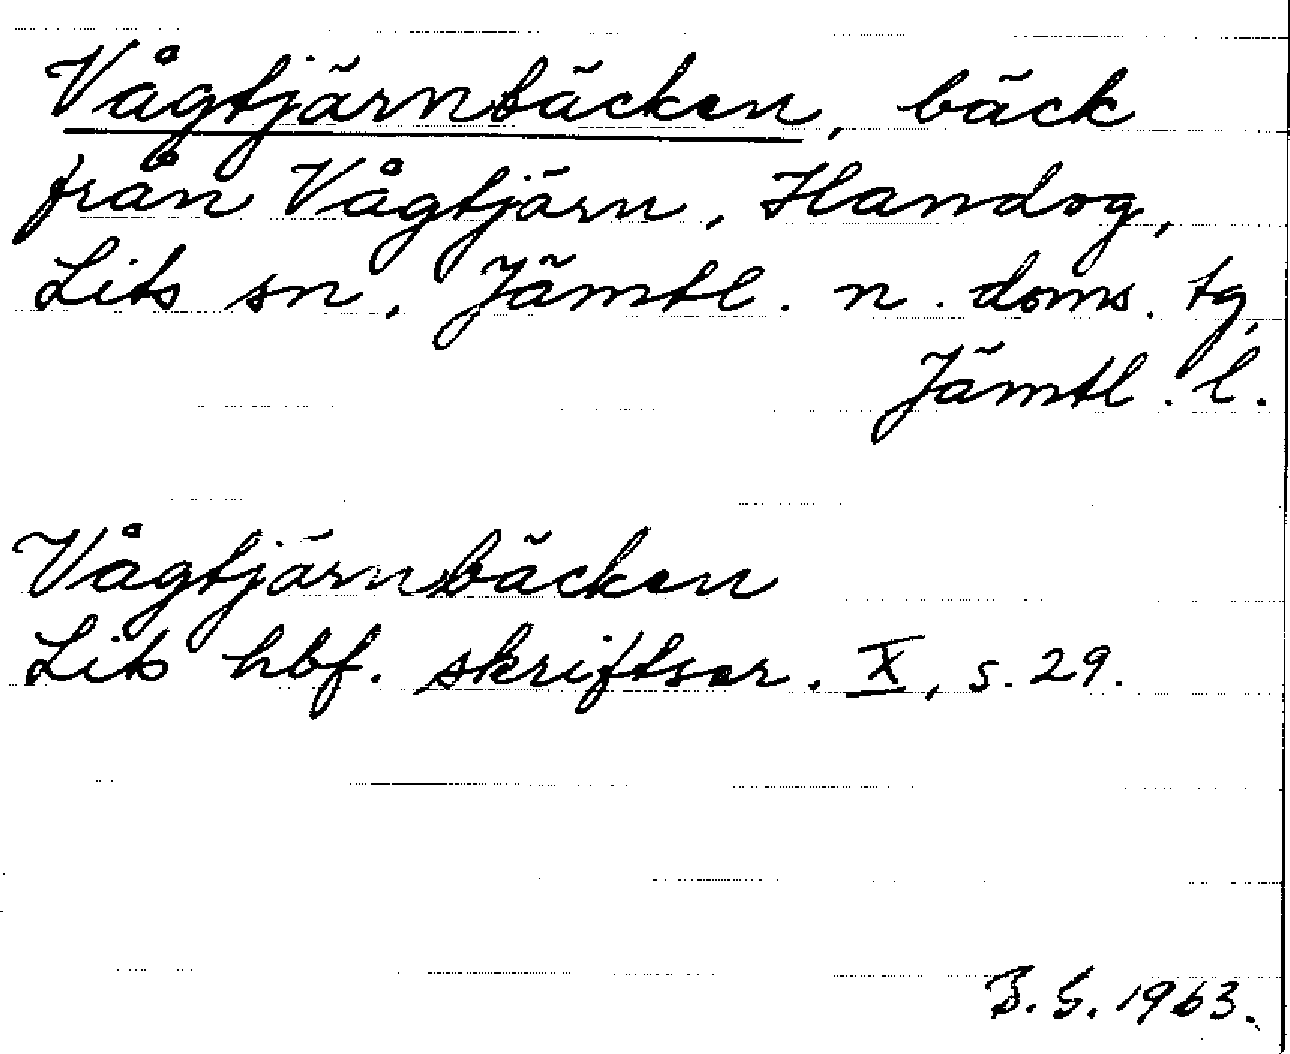 Vågtjärnbäcken, bäck
från Vågtjärn, Handog,
Lits sn, Jämtl. n. doms. tg,
Jämtl. l.
Vågtjärnbäcken
Lits hbf. skriftser. X, s. 29.
B. S. 1963.